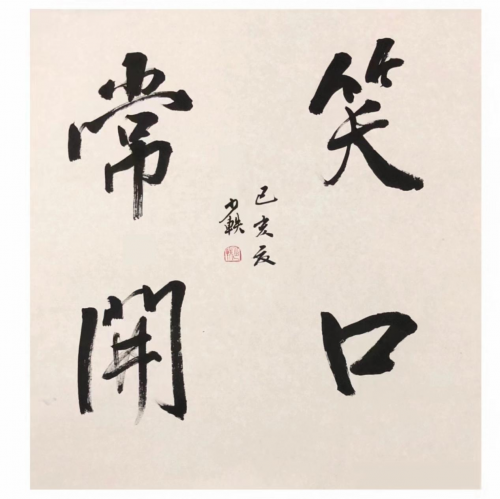 笑口
常開
己亥夏
少軼